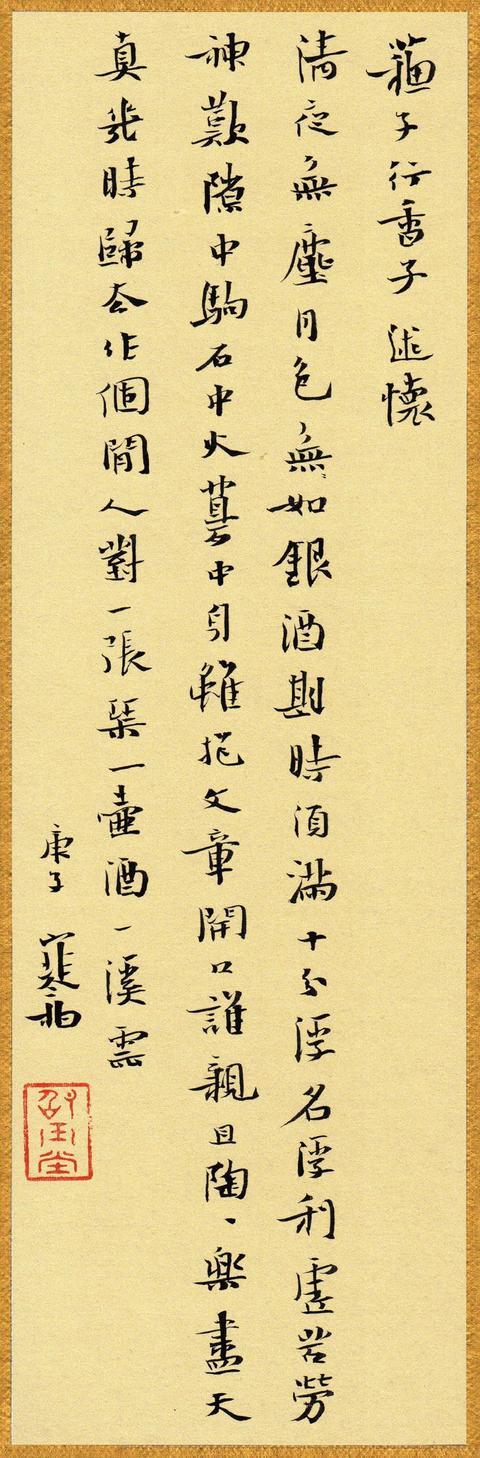 蘇子行香子 述懷
清夜無塵月色無如銀酒斟時須滿十分浮名浮利虛苦勞
神歎隙中駒石中火夢中身雖抱文章開口誰親且陶、樂盡天
真幾時歸去作個閒人對一張琴一壺酒一溪雲
庚子